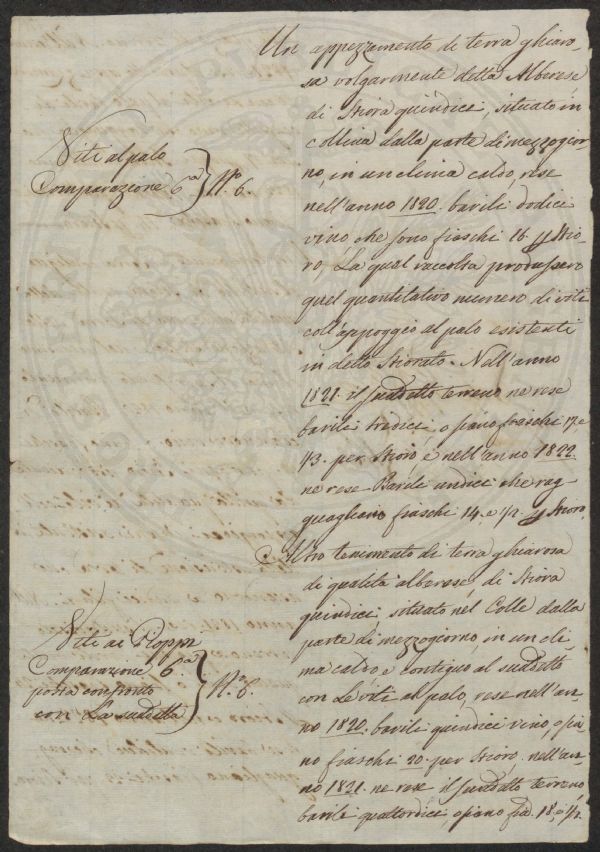 Un appezzamento di terra ghiaro-
sa volgarmente detta Alberese
di Stiora quindici, situato in
collina dalla parte di mezzogior-
no, in un clima caldo, rese
nell'anno 1820. barili dodici
vino, che sono fiaschi 16. p Stio-
ro, La qual raccolta produssero
quel quantitativo numero di viti
coll'appoggio al palo esistenti
in detto Stiorato. Nell'anno
1821. il suddetto terreno ne rese
barili tredici, o siano fiaschi 17. e
1/3. per Stioro, e nell'anno 1822.
ne rese Barili undici che rag-
guagliano fiaschi 14. e 1/2. p Stioro.
Viti al palo
Comparazione 6.a } N.o 6.
Altro tenimento di terra ghiarosa
di qualità alberese, di Stiora
quindici, situato nel Colle dalla
parte di mezzogiorno, in un cli-
ma caldo, e contiguo al suddetto
con Le viti al palo, rese nell'an-
no 1820. barili quindici vino, o sia-
no fiaschi 20. per Stioro, nell'an-
no 1821. ne rese il suddetto terreno
barili quattordici, o siano fia. 18. e 1/2.
Viti ai Pioppi
Comparazione 6.a
posta confronto
con La suddetta } N.o 6.